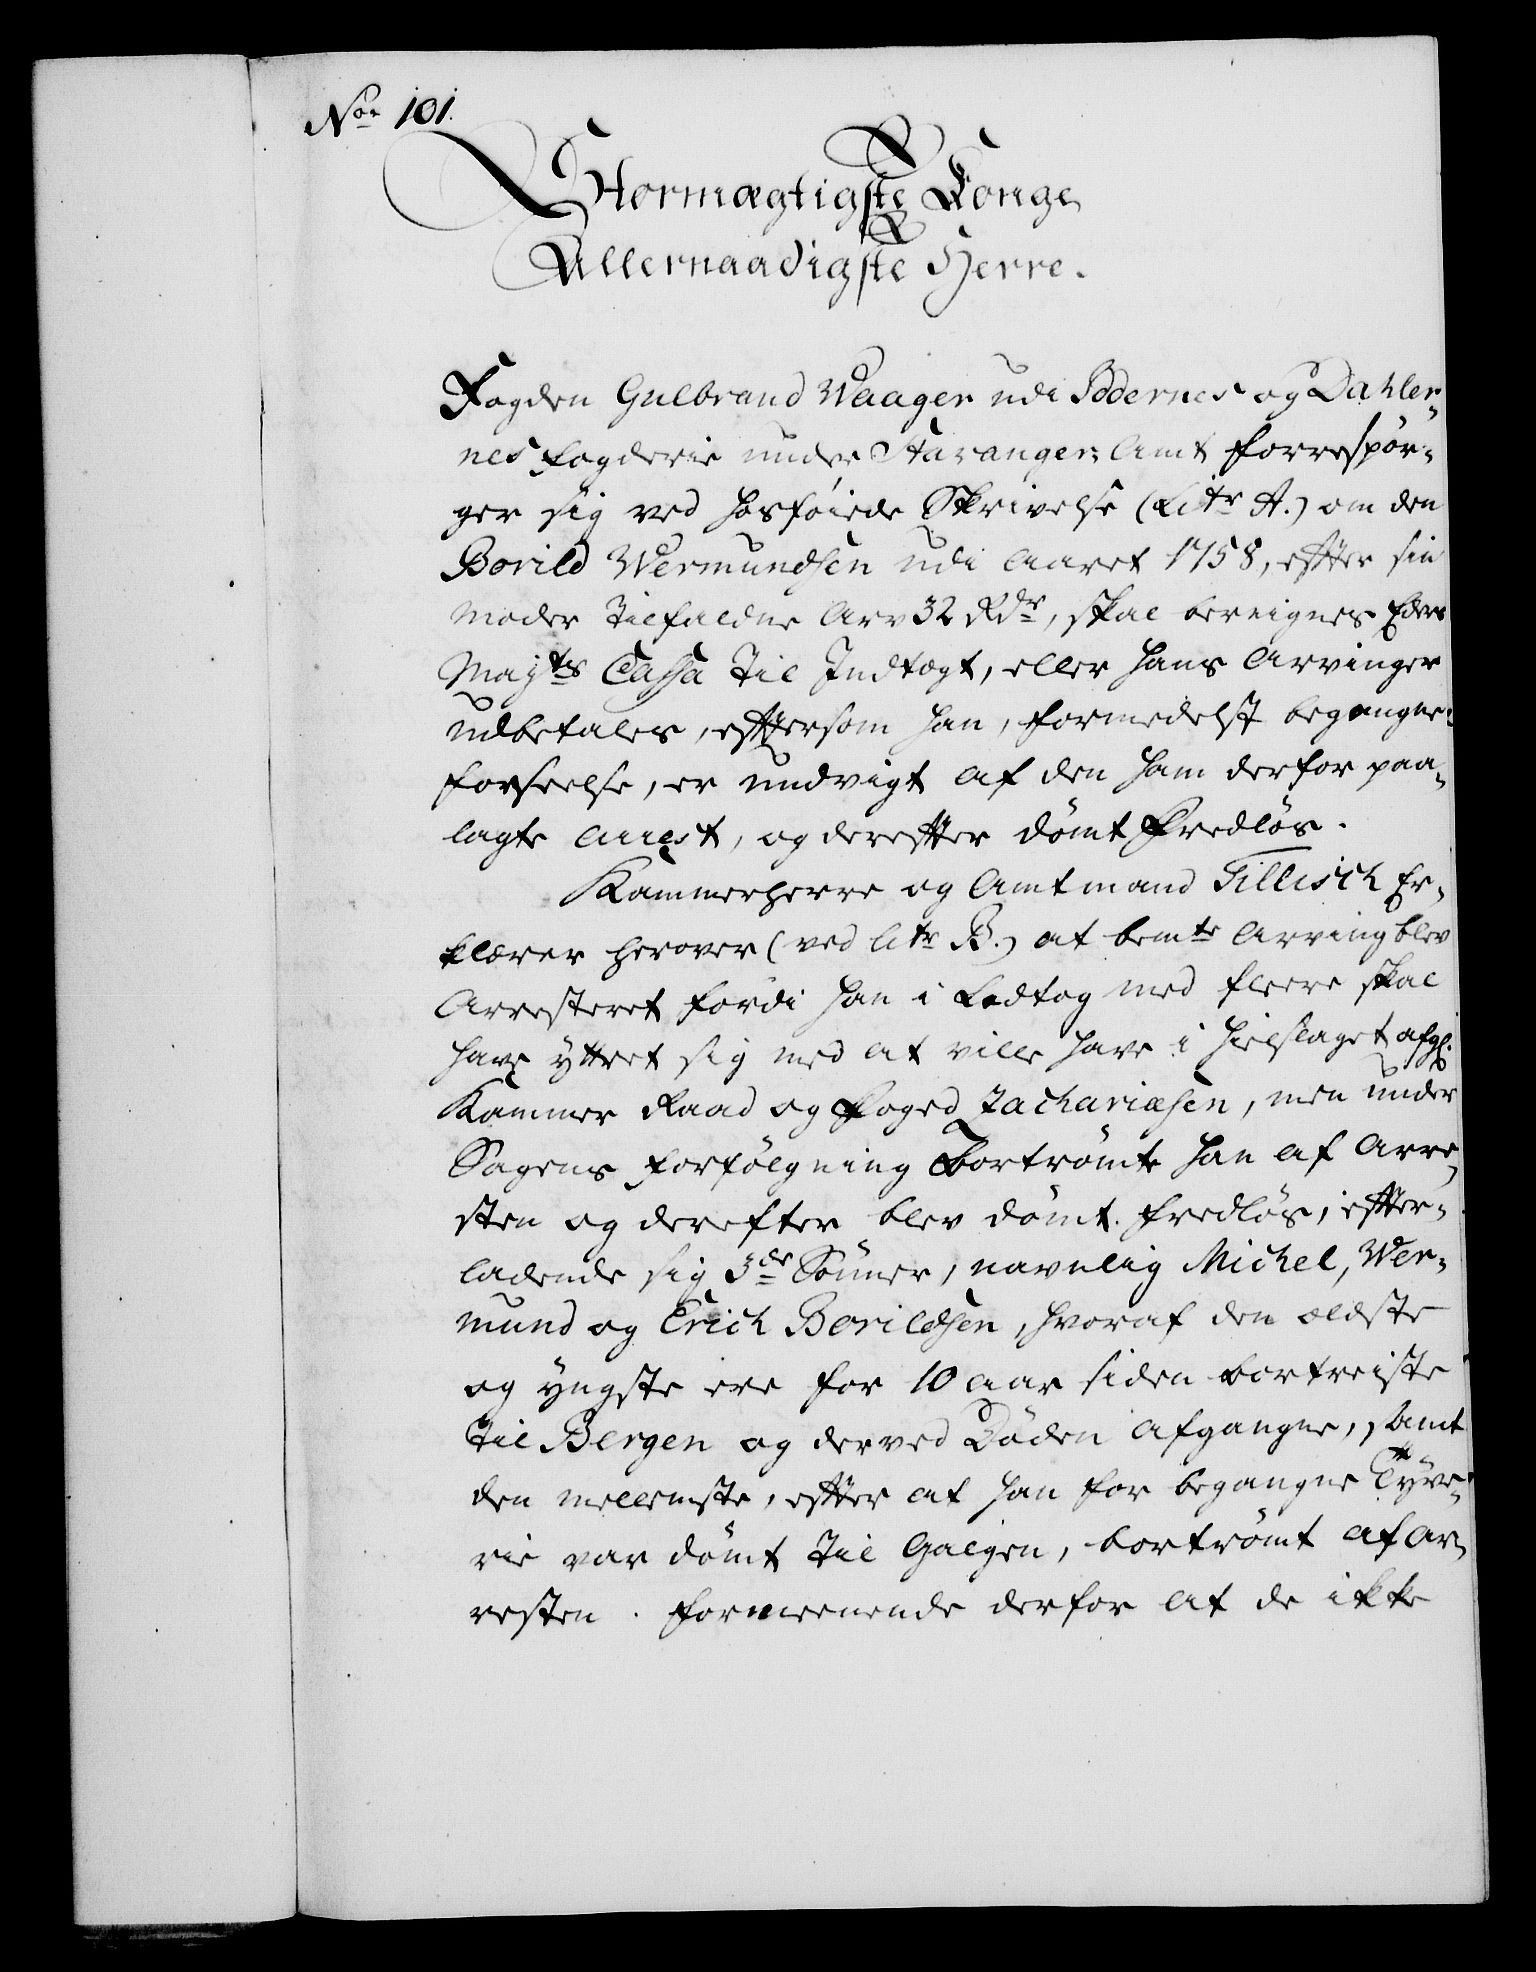 Noe 101.
Stormægtigste Konge
Allernaadigste Herre.
Fogden Gulbrand Waager udi Jedernes og Dahler„
nes Fogderie under Stavanger Amt forrespør„
ger sig ved hosføiede Skrivelse (Litr A.) om den
Borild Wermundsen udi Aaret 1758, effter sin
Moder tilfaldne Arv 32 Rdr, skal beregnes Eders
Mayts Cassa til Indtægt, eller hans Arvinger
udbetales, efftersom han, formedelst begangne
forseelse, er undvigt af den ham derfor paa„
lagte Arrest, og dereffter dømt Fredløs.
Kammerherre og Amtmand Tillisch Er„
klærer herover (ved litr B.) at bemte Arving blev
Arresteret fordi han i Ledtog med fleere skal
have yttret sig med at ville have i hielslaget afg.
Kammer Raad og Foged Zachariæsen, men under
Sagens forfølgning bortrømte han af Arre„
sten og derefter blev dømt fredløs, effter„
ladende sig 3de Sønner, navnlig Michel, Wer„
mund og Erich Borildsen, hvoraf den ældste
og yngste ere for 10 aar siden bortreiste
til Bergen og derved Døden afgangne, samt
den mellemste, effter at han for begangne Tyve„
rie var dømt til Galgen, bortrømt af Ar„
resten. formeenende derfor at de ikke